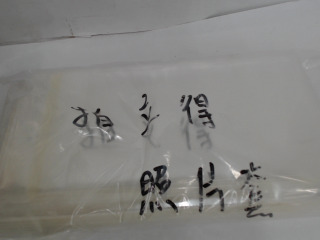 拍立得
照片套